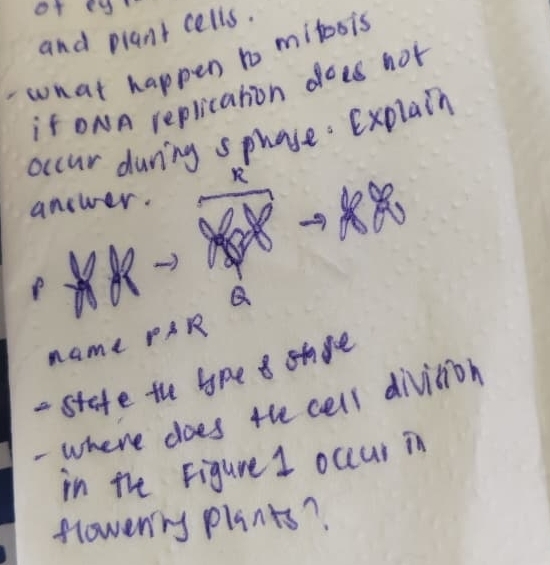 of
and plant cells.
- what happen to mitosis
if DNA replication does not
occur during s phase. Explain
answer.
R
P → →
Q
name P & R
- state the type & stage
- where does the cell division
in the Figure 1 occur in
flowering plants?